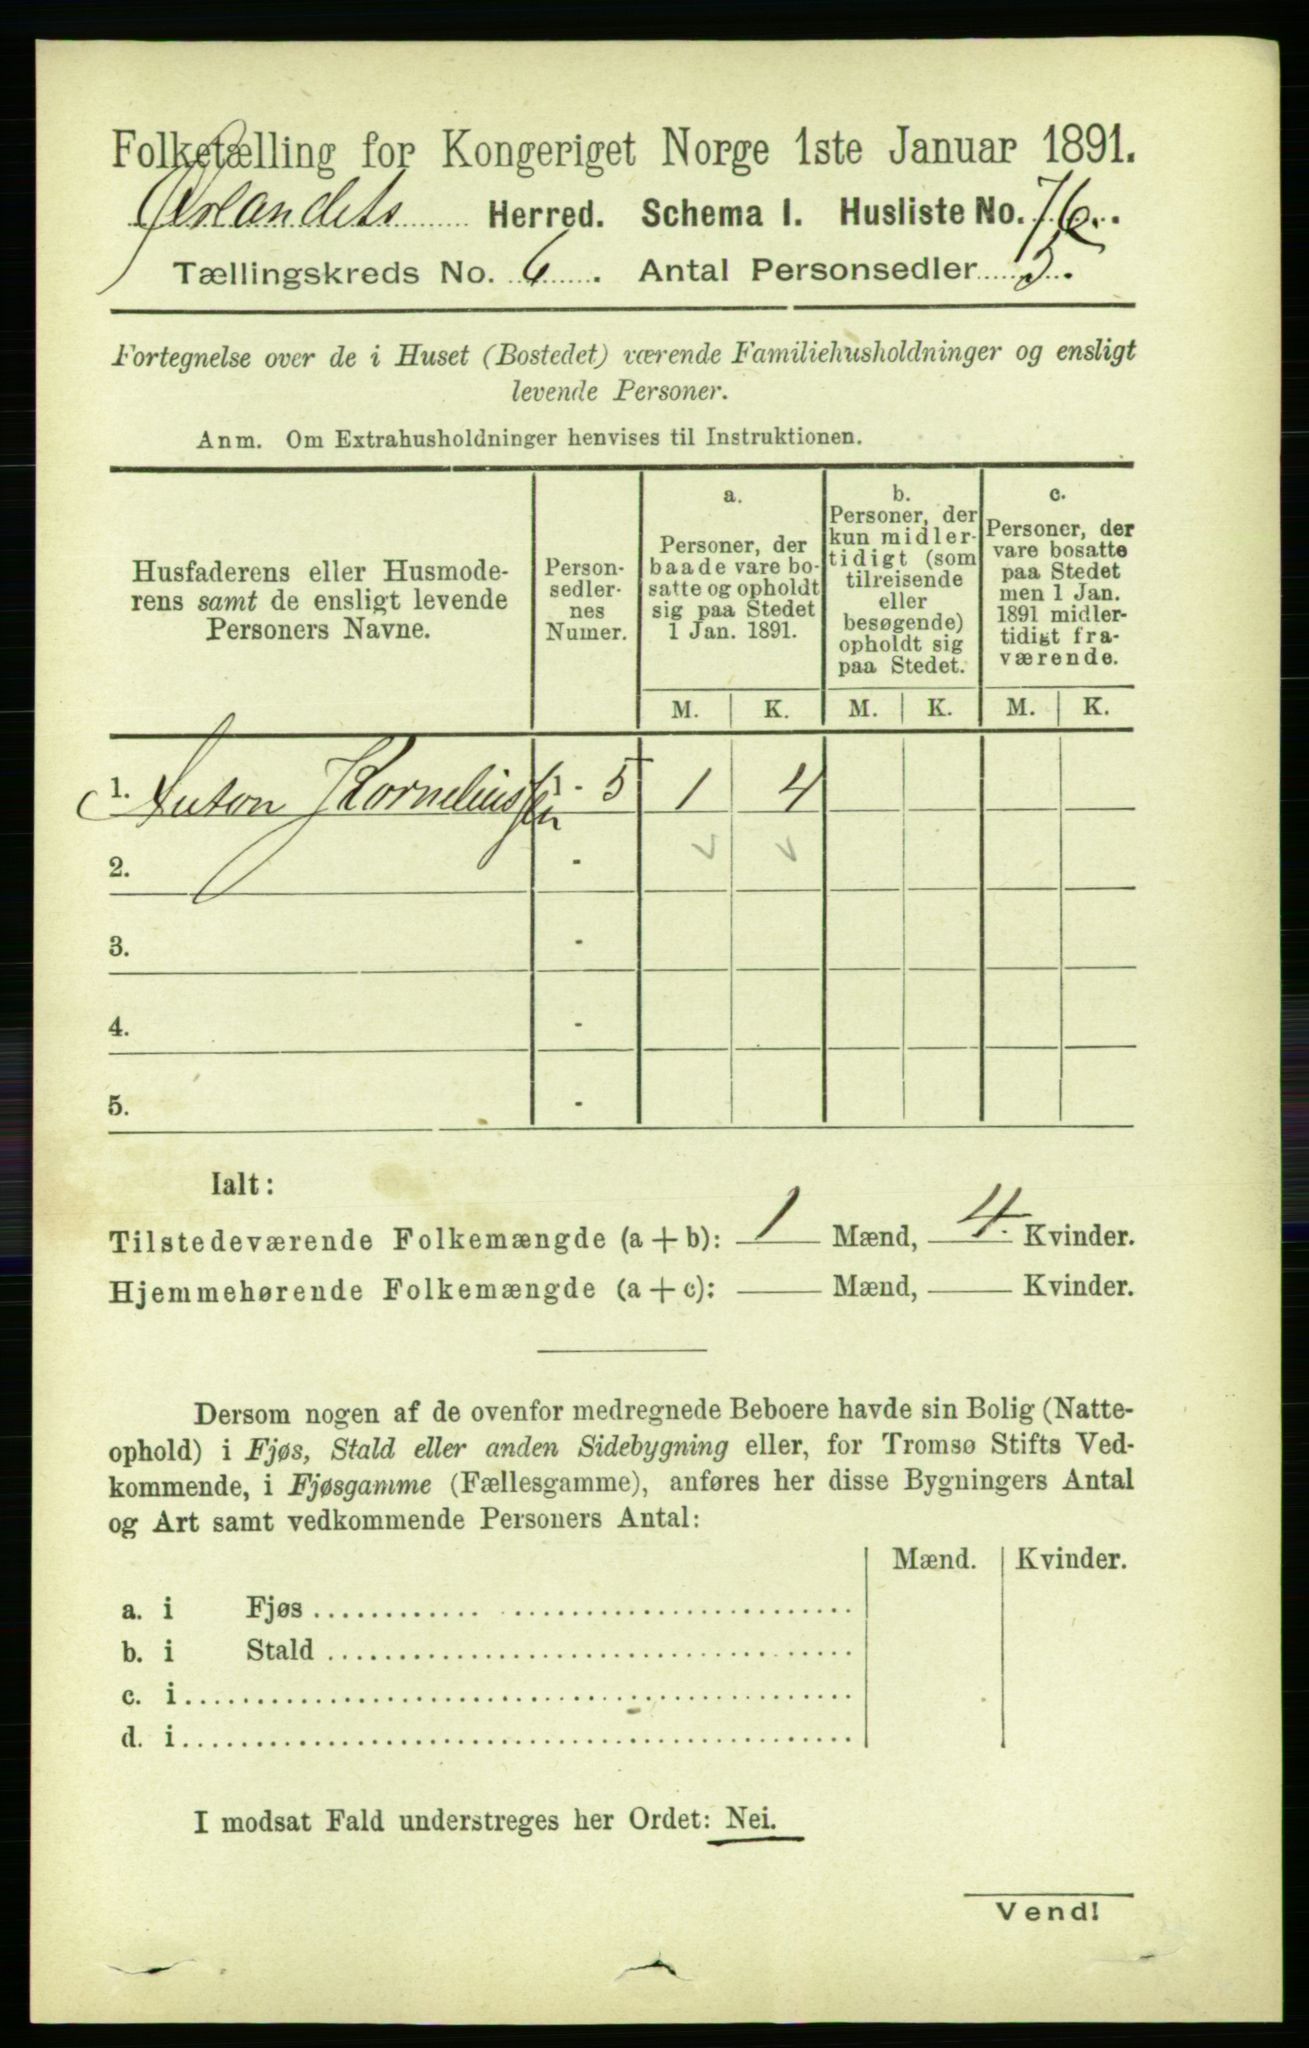 Folketælling for Kongeriget Norge 1ste Januar 1891.
Ørlandets Herred. Schema 1. Husliste No. 76.
Tællingskreds No. 6. Antal Personsedler 5.
Fortegnelse over de i Huset (Bostedet) værende Familiehusholdninger og ensligt
levende Personer.
Anm. Om Extrahusholdninger henvises til Instruktionen.
Husfaderens eller Husmode-
rens samt de ensligt levende
Personers Navne.
Person-
sedler-
nes
Numer.
a.
Personer, der
baade vare bo-
satte og opholdt
sig paa Stedet
1 Jan. 1891.
b.
Personer, der
kun midler-
tidigt (som
tilreisende
eller
besøgende)
opholdt sig
paa Stedet.
c.
Personer, der
vare bosatte
paa Stedet
men 1 Jan.
1891 midler-
tidigt fra-
værende.
M. K. M. K. M. K.
1. Anton Korneliussen 1 - 5 1 4
2. -
3. -
4. -
5. -
Ialt:
Tilstedeværende Folkemængde (a + b): 1 Mænd, 4. Kvinder.
Hjemmehørende Folkemængde (a + c): Mænd, Kvinder.
Dersom nogen af de ovenfor medregnede Beboere havde sin Bolig (Natte-
ophold) i Fjøs, Stald eller anden Sidebygning eller, for Tromsø Stifts Ved-
kommende, i Fjøsgamme (Fællesgamme), anføres her disse Bygningers Antal
og Art samt vedkommende Personers Antal:
Mænd. Kvinder.
a. i Fjøs
b. i Stald
c. i
d. i
I modsat Fald understreges her Ordet: Nei.
Vend!